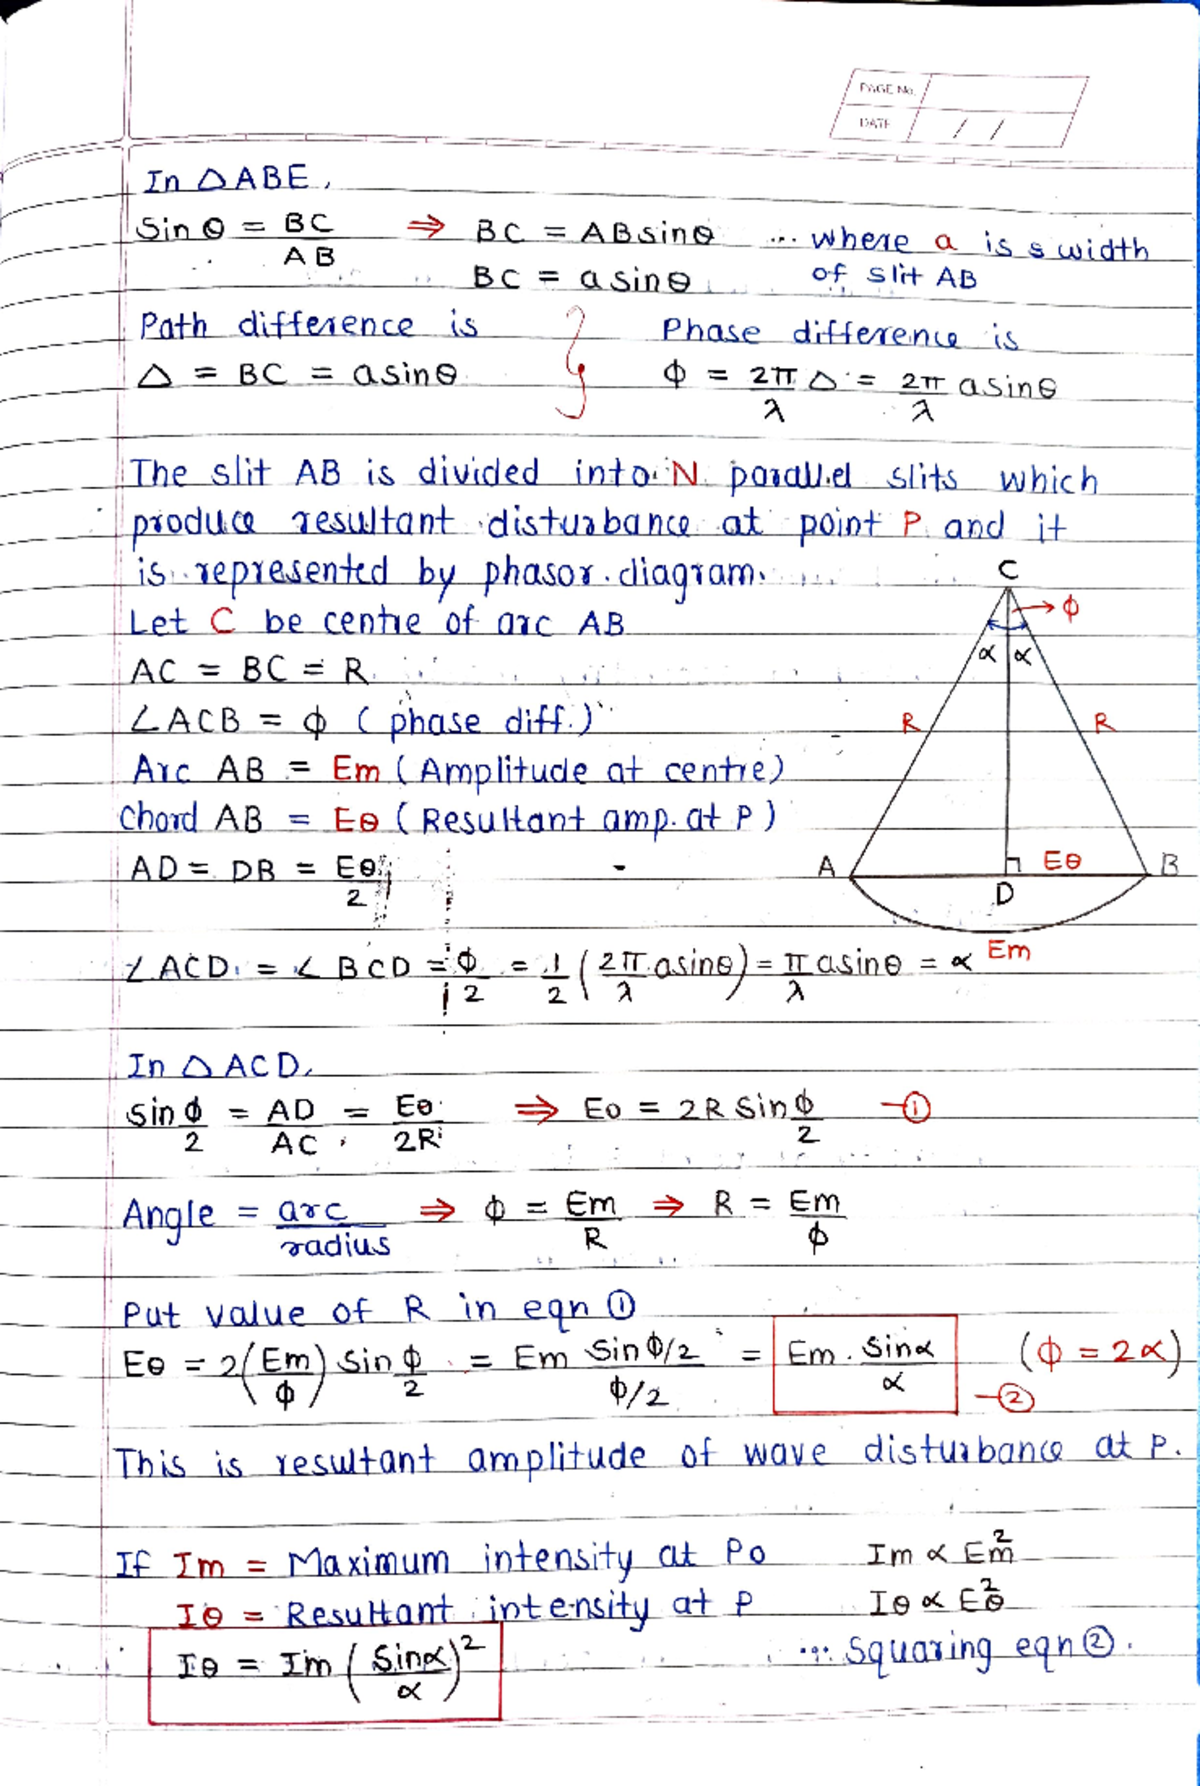 PAGE No.
DATE / /
In △ABE,
Sin θ = BC/AB ⇒ BC = ABsinθ ... where a is s width
BC = asinθ of slit AB
Path difference is Phase difference is
△ = BC = asinθ ϕ = 2π/λ △ = 2π/λ asinθ
The slit AB is divided into N parallel slits which
produce resultant disturbance at point P and it
is represented by phasor diagram.
Let C be centre of arc AB
AC = BC = R
∠ACB = ϕ (phase diff.)
Arc AB = Em (Amplitude at centre)
Chord AB = Eθ (Resultant amp. at P)
AD = DB = Eθ/2
C
ϕ
α α
R R
A D Eθ B
Em
∠ACD = ∠BCD = ϕ/2 = 1/2 (2π/λ asinθ) = π/λ asinθ = α
In △ACD,
sin ϕ/2 = AD/AC = Eθ/2R ⇒ Eo = 2R Sin ϕ/2 –①
Angle = arc/radius ⇒ ϕ = Em/R ⇒ R = Em/ϕ
Put value of R in eqn ①
Eθ = 2(Em/ϕ) sin ϕ/2 = Em Sin ϕ/2 / ϕ/2 = Em . Sinα/α (ϕ = 2α)
–②
This is resultant amplitude of wave disturbance at P.
If Im = Maximum intensity at Po Im α Em²
Iθ = Resultant intensity at P Iθ α Eθ²
Iθ = Im (Sinα/α)² ... Squaring eqn ②.